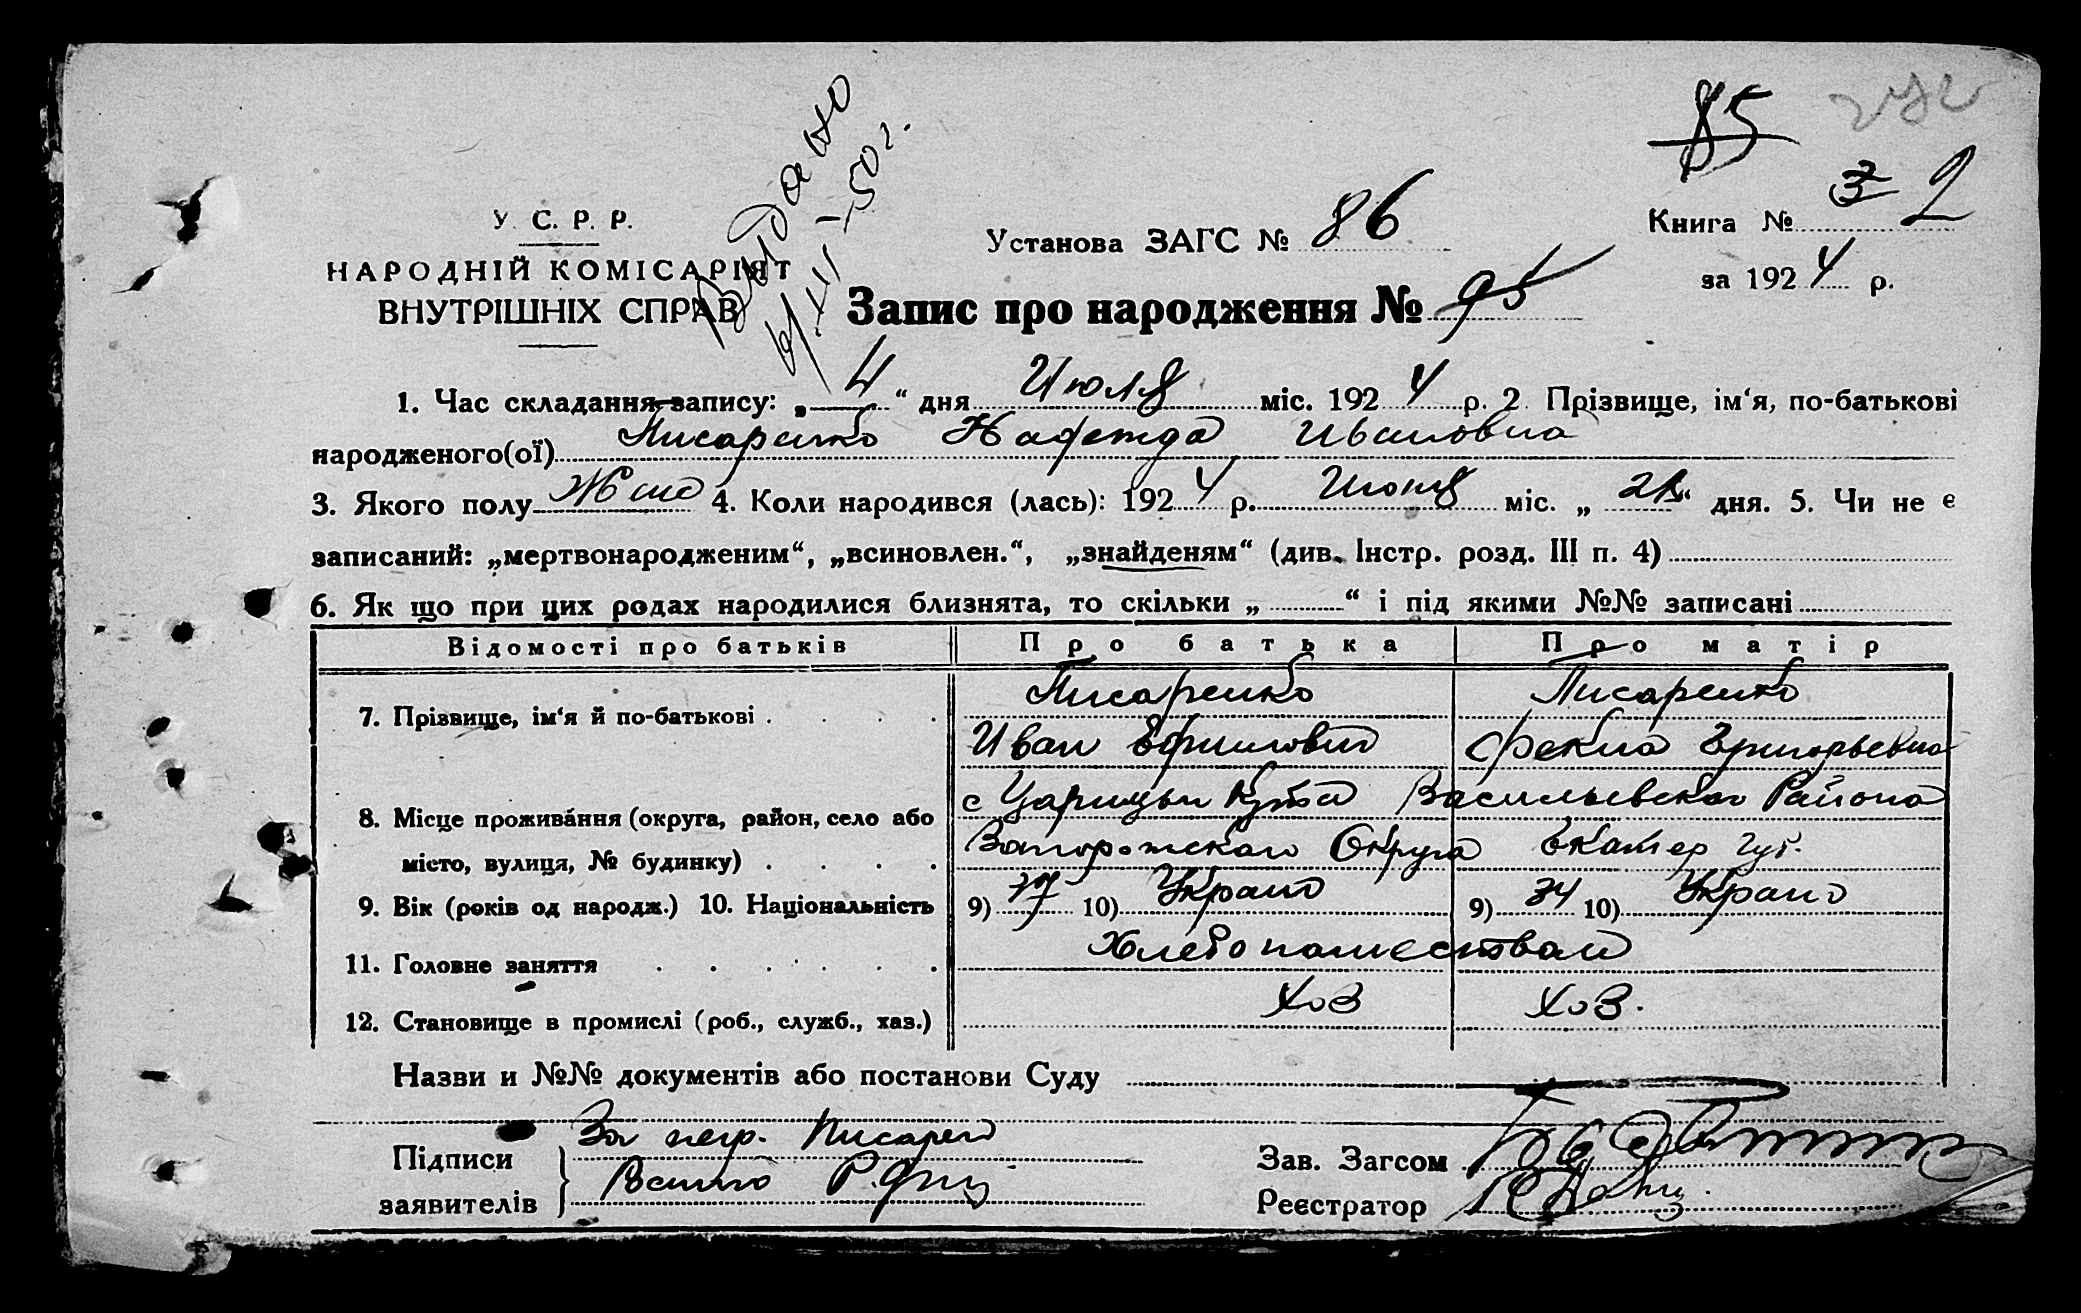 85
Видано
Книга № 3 2
У. С. Р. Р.
Установа ЗАГС № 86
за 1924 р.
НАРОДНІЙ КОМІСАРІЯТ
ВНУТРІШНІХ СПРАВ
Запис про народження № 95
1. Час складання запису: „ 4 “ дня Июля міс. 1924 р. 2. Прізвище, ім‘я, по-батькові
народженого(ої) Писаренко Надежда Ивановна
3. Якого полу Жен 4. Коли народився (лась): 1924 р. міс. „ “ дня. 5. Чи не є
записаний: „мертвонародженим“, „всиновлен.“, „знайденям“ (див. Інстр. розд. III п. 4)
6. Як що при цих родах народилися близнята, то скільки „ “ і під якими №№ записані
Відомості про батьків Про батька Про матір
7. Прізвище, ім‘я й по-батькові Писаренко Писаренко
Иван Ефимович Фекла Григорьевна
8. Місце проживання (округа, район, село або с Царицын Кута Васильевского Района
місто, вулиця, № будинку) Запорожского Округа Екатер губ.
9. Вік (років од народж.) 10. Національність 9) 37 10) Украин 9) 34 10) Украин
11. Головне заняття Хлебопашеством
12. Становище в промислі (роб., служб., хаз.) Хоз Хоз.
Назви и №№ документів або постанови Суду
Підписи За негр. Писарен
Зав. Загсом
заявителів
Реєстратор